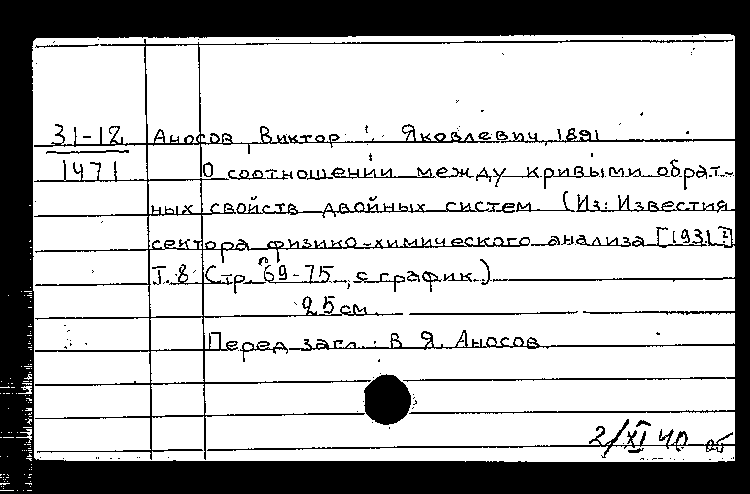 31-12 Аносов, Виктор Яковлевич, 1891
1471 О соотношении между кривыми обрат-
ных свойств двойных систем. (Из: Известия
сектора физико-химического анализа [1931?]
Т. 8. Стр. 69-75, с график.)
25 см.
Перед загл.: В. Я. Аносов
2/XI 40 об